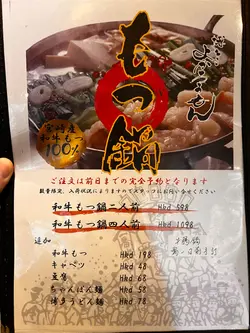 もつ鍋
和牛もつ
100%
ご注文は前日までの完全予約となります
数量限定、入荷状況によりますのでスタッフにお問い合わせください
和牛もつ鍋二人前 Hkd 598
和牛もつ鍋四人前 Hkd 1098
追加
和牛もつ Hkd 198
キャベツ Hkd 48
豆腐 Hkd 68
ちゃんぽん麺 Hkd 58
博多うどん麺 Hkd 78